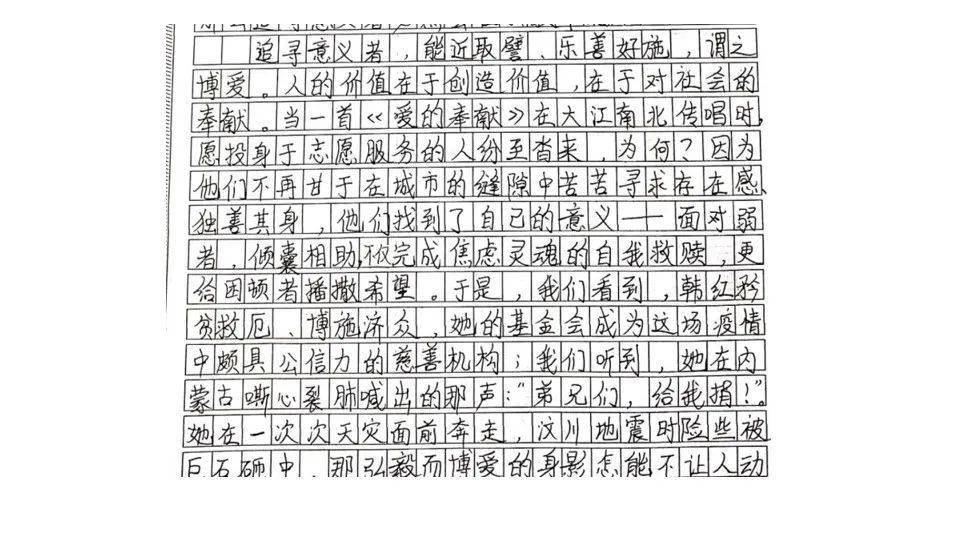 追寻意义者，能近取譬、乐善好施，谓之
博爱。人的价值在于创造价值，在于对社会的
奉献。当一首《爱的奉献》在大江南北传唱时，
愿投身于志愿服务的人纷至沓来，为何？因为
他们不再甘于在城市的缝隙中苦苦寻求存在感、
独善其身，他们找到了自己的意义——面对弱
者，倾囊相助，不仅完成焦虑灵魂的自我救赎，更
给困顿者播撒希望。于是，我们看到，韩红矜
贫救厄、博施济众，她的基金会成为这场疫情
中颇具公信力的慈善机构；我们听到，她在内
蒙古嘶心裂肺喊出的那声：“弟兄们，给我捐！”。
她在一次次天灾面前奔走，汶川地震时险些被
巨石砸中，那弘毅而博爱的身影怎能不让人动